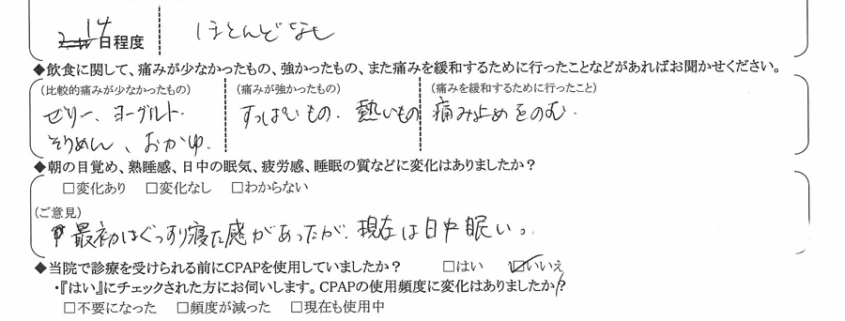 14日程度 ほとんどなし
◆飲食に関して、痛みが少なかったもの、強かったもの、また痛みを緩和するために行ったことなどがあればお聞かせください。
(比較的痛みが少なかったもの) (痛みが強かったもの) (痛みを緩和するために行ったこと)
ゼリー、ヨーグルト. すっぱいもの. 熱いもの 痛み止めをのむ.
そうめん、おかゆ.
◆朝の目覚め、熟睡感、日中の眠気、疲労感、睡眠の質などに変化はありましたか?
□変化あり □変化なし □わからない
(ご意見)
最初はぐっすり寝た感があったが、現在は日中眠い。
◆当院で診療を受けられる前にCPAPを使用していましたか? □はい ☑いいえ
・『はい』にチェックされた方にお伺いします。CPAPの使用頻度に変化はありましたか?
□不要になった □頻度が減った □現在も使用中